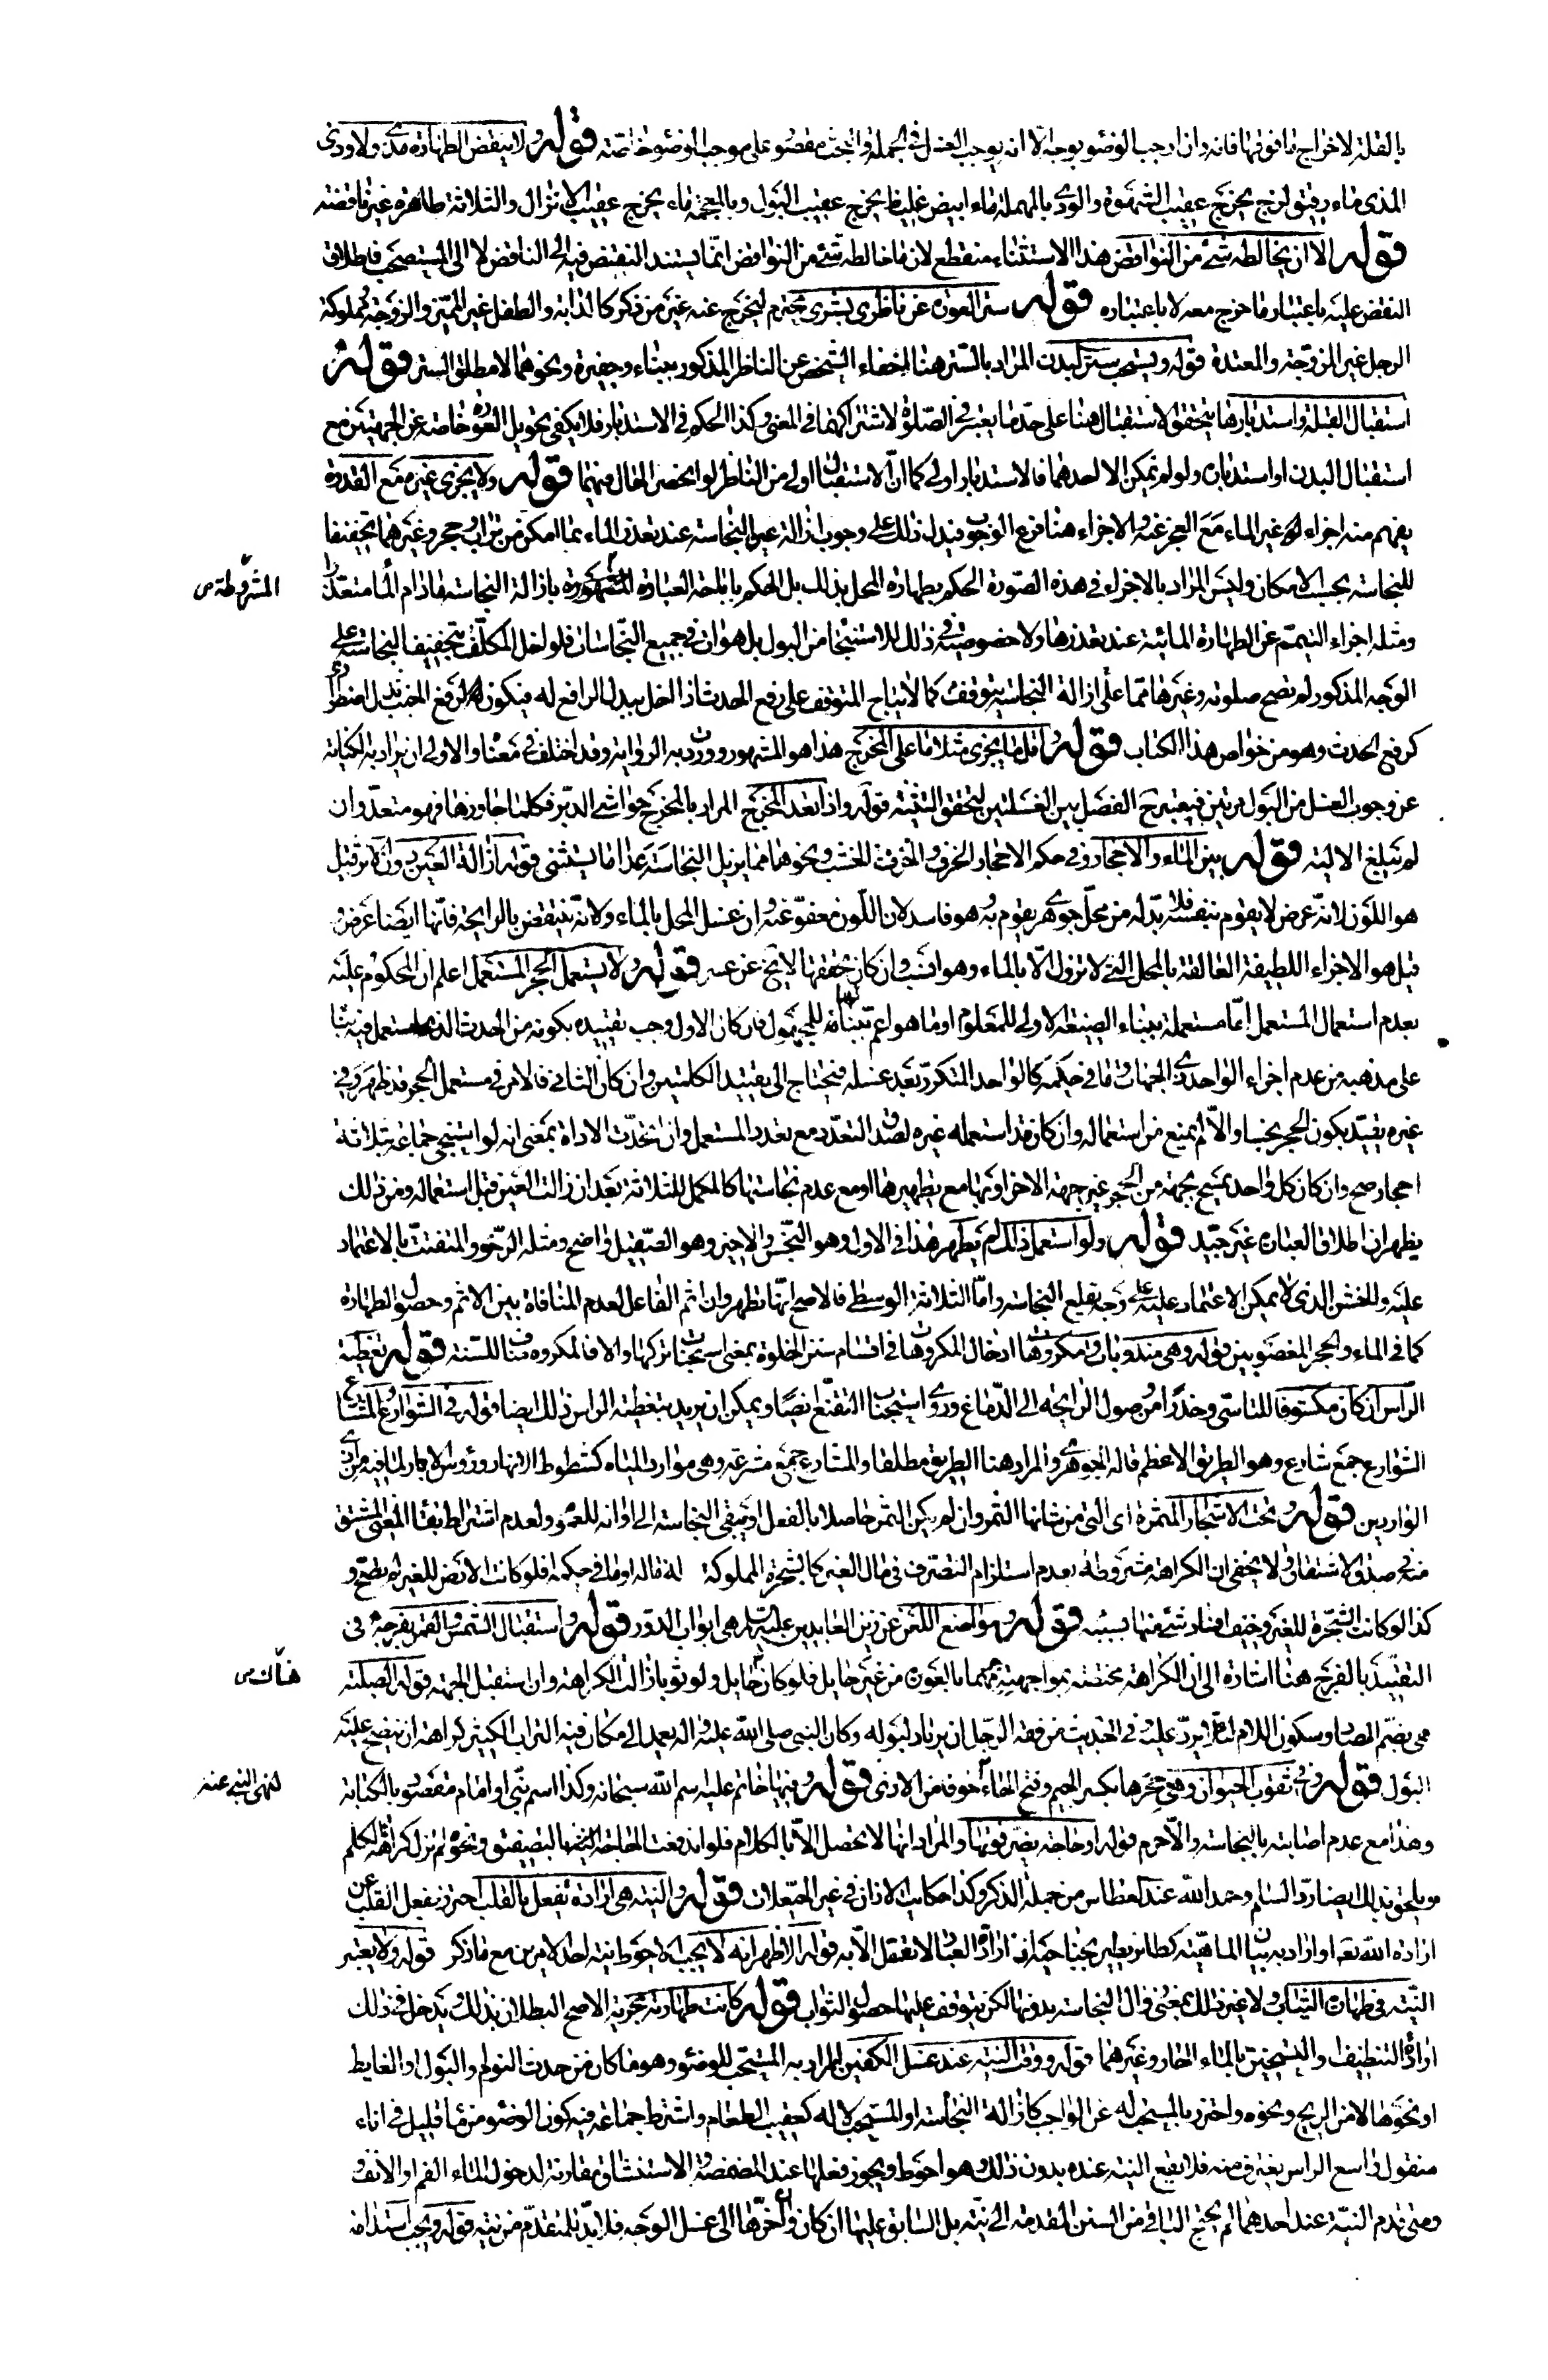 بالقلة لاخراج ما فوقها فانه وان اوجب الوضوء بوجه الا انه يوجب الغسل في الجملة والبحث مقصور على موجب الوضوء خاصة قوله ولا ينقض الطهارة مذي ولا ودي
المذي ماء رقيق لزج يخرج عقيب الشهوة والودي بالمهملة ماء ابيض غليظ يخرج عقيب البول وبالمعجمة ماء يخرج عقيب الانزال والثلاثة طاهرة غير ناقضة
قوله الا ان يخالطه شئ من النواقض هذا الاستثناء منقطع لان ما خالطه شئ من النواقض انما يستند النقض فيه الى الناقض لا الى المستصحب فاطلاق
النقض عليه باعتبار ما خرج معه لا باعتباره قوله ستر العورة عن ناظر بشري محترم ليخرج عنه غير من ذكر كالدابة والطفل غير المميز والزوجة ومملوكة
الرجل غير المزوجة والمعتدة قوله ويستحب ستر البدن المراد بالستر هنا اخفاء الشخص عن الناظر المذكور ببناء وحفيرة ونحوهما لا مطلق الستر قوله
استقبال القبلة واستدبارها يتحقق الاستقبال هنا على حد ما يعتبر في الصلوة لاشتراكهما في المعنى وكذا الحكم في الاستدبار فلا يكفي تحويل العورة خاصة عن الجهتين مع
استقبال البدن او استدباره ولو لم يمكن الا احدهما فالاستدبار اولى كما ان الاستقبال اولى من الناظر لو انحصر الحال فيهما قوله ولا يجزي غيره مع القدرة
يفهم منه اجزاء غير الماء مع العجز عنه والاجزاء هنا فرع الوجوب فيدل ذلك على وجوب ازالة عين النجاسة عند تعذر الماء بما امكن من تراب وحجر وغيرهما تخفيفا
للنجاسة بحسب الامكان وليس المراد بالاجزاء في هذه الصورة الحكم بطهارة المحل بذلك بل الحكم باباحة العبادة المشروطة بازالة النجاسة ما دام الماء متعذرا
المشروطة ص
ومثله اجزاء التيمم عن الطهارة المائية عند تعذرها ولا خصوصية في ذلك للاستنجاء من البول بل هو ات في جميع النجاسات فلو اخل المكلف بتخفيف النجاسة على
الوجه المذكور لم تصح صلوته وغيرها مما على ازالة النجاسة يتوقف كما لا يباح المتوقف على رفع الحدث اذا اخل ببدل الرافع له فيكون لرفع الخبث بدل اضطراري
كرفع الحدث وهو من خواص هذا الكتاب قوله اقل ما يجزي مثلا ما على المخرج هذا هو المشهور وورد به الرواية وقد اختلف في معناه والاولى ان يراد به الكناية
عن وجوب الغسل من البول مرتين فيعتبر الفصل بين الغسلتين ليتحقق التثنية قوله واذا تعدى المخرج المراد بالمخرج حواشي الدبر فكلما جاوزها فهو متعد وان
لم يبلغ الالية قوله بين الماء والاحجار وفي حكم الاحجار الخزف والخرق والخشب ونحوها مما يزيل النجاسة عدا ما يستثنى قوله ازالة العين دون الاثر قيل
هو اللون لانه عرض لا يقوم بنفسه فلا بد له من محل جوهري يقوم به وهو فاسد لان اللون معفو عنه وان غسل المحل بالماء ولانه ينتقض بالرايحة فانها ايضا عرض و
قيل هو الاجزاء اللطيفة العالقة بالمحل التي لا تزول الا بالماء وهو انسب وان كان تحققها لا يخ عن عسر قوله ولا يستعمل الحجر المستعمل اعلم ان المحكوم عليه
بعدم استعمال المستعمل اما مستعمله ببناء الصيغة الاولى للمعلوم او ما هو اعم ببنائها للمجهول فان كان الاول وجب تقييده بكونه من الحدث الذي استعمل فيه بناء
على مذهبه من عدم اجزاء الواحد ذي الجهات وما في حكمه كالواحد المتكرر بعد غسله فيحتاج الى تقييد الكلمتين وان كان الثاني فالامر في مستعمل الحجر قد ظهر وفي
غيره يقيد بكون الحجر نجسا والا لم يمنع من استعماله وان كان قد استعمله غيره لصدق التعدد مع تعدد المستعمل وان اتحدت الاداة بمعنى انه لو استنجى جماعة بثلاثة
احجار صح وان كان كل واحد يمسح بجهة من الحجر غير جهة الاخر او بها مع تطهيرها او مع عدم نجاستها كالمكمل للثلاثة بعد ان زالت العين قبل استعماله ومن ذلك
يظهر ان اطلاق العبارة غير جيد قوله ولو استعمل ذلك لم يطهر هذا في الاول وهو النجس والاخير وهو الصيقل واضح ومثله الرخو والمتفتت بالاعتماد
عليه والخشن الذي لا يمكن الاعتماد عليه على وجه يقلع النجاسة واما الثلاثة الوسطى فالاصح انها تطهر وان اثم الفاعل لعدم المنافاة بين الاثم وحصول الطهارة
كما في الماء والحجر المغصوبين قوله وهي مندوبات ومكروهات ادخال المكروهات في اقسام سنن الخلوة بمعنى استحباب تركها والا فالمكروه مناف للسنة قوله تغطية
الراس ان كان مكشوفا للتاسي وحذرا من وصول الرايحة الى الدماغ وروي استحباب التقنع ايضا ويمكن ان يريد بتغطية الراس ذلك ايضا قوله في الشوارع والمشارع
الشوارع جمع شارع وهو الطريق الاعظم قاله الجوهري والمراد هنا الطريق مطلقا والمشارع جمع مشرعة وهي موارد المياه كشطوط الانهار ورؤوس الابار لما فيه من اذى
الواردين قوله وتحت الاشجار المثمرة اي التي من شانها الثمر وان لم يكن الثمر حاصلا بالفعل او تبقى النجاسة الى اوانه للعموم ولعدم اشتراط بقاء المعنى المشتق
منه في صدق الاشتقاق ولا يخفى ان الكراهة مشروطة بعدم استلزام التصرف في مال الغير كالشجرة المملوكة له ماله او ما في حكمه فلو كانت الارض للغير لم يصح و
كذا لو كانت الشجرة للغير وخيف افساد شئ منها بسببه قوله ومواضع اللعن عن زين العابدين عليه السلم هي ابواب الدور قوله واستقبال الشمس والقمر بفرجه في
التقييد بالفرج هنا اشارة الى ان الكراهة مختصة بمواجهة جرمهما بالعورة من غير حايل فلو كان حايل ولو ثوبا زالت الكراهة وان استقبل الجهة قوله الصلبة
هناك ص
هي بضم الصاد وسكون اللام لئلا يرد عليه وفي الحديث من فقه الرجل ان يرتاد لبوله وكان النبي صلى الله عليه واله يعمد الى مكان فيه التراب الكثير كراهة ان ينضح عليه
البول قوله وفي ثقوب الحيوان وهي جحرها بكسر الجيم وفتح الحاء خوفا من الاذى قوله وفيها خاتم عليه اسم الله سبحانه وكذا اسم نبي او امام مقصود بالكتابة
لنهي النبي عنه
وهذا مع عدم اصابته بالنجاسة والا حرم قوله او حاجة يضر فوتها والمراد انها لا تحصل الا بالكلام فلو اندفعت الحاجة بالتصفيق ونحوه لم تزل كراهة الكلام
ويلحق بذلك ايضا رد السلام وحمد الله عند العطاس من جملة الذكر وكذا حكاية الاذان في غير الحيعلات قوله والنية هي ارادة تفعل بالقلب احترز بفعل القلب عن
ارادة الله تع او اراد به بيان الماهية كطائر يطير بجناحيه اذ ارادة العباد لا تعقل الا به قوله الاظهر انه لا يجب الاحوط نية احد الامرين مع ما ذكر قوله ولا يعتبر
النية في طهارة الثياب ولا غير ذلك بمعنى زوال النجاسة بدونها لكن يتوقف عليها حصول الثواب قوله كانت طهارته مجزية الاصح البطلان بذلك ويدخل في ذلك
ارادة التنظيف والتسخين بالماء الحار وغيرهما قوله ووقت النية عند غسل الكفين المراد به المستحب للوضوء وهو ما كان من حدث النوم والبول او الغايط
او نحوها لا من الريح ونحوه واحترز بالمستحب له عن الواجب كازالة النجاسة او المستحب لا له كعقيب الطعام واشترط جماعة فيه كون الوضوء من ماء قليل في اناء
منقول واسع الراس يغترف منه فلا يقع النية عنده بدون ذلك وهو احوط ويجوز فعلها عند المضمضة والاستنشاق مقارنة لدخول الماء الفم او الانف و
ومتى قدم النية عند احدهما لم يحتج الباقي من السنن المقدمة الى نية بل السابق عليها ان كان واخرها الى غسل الوجه فلا بد للمتقدم من نية قوله ويجب استدامة